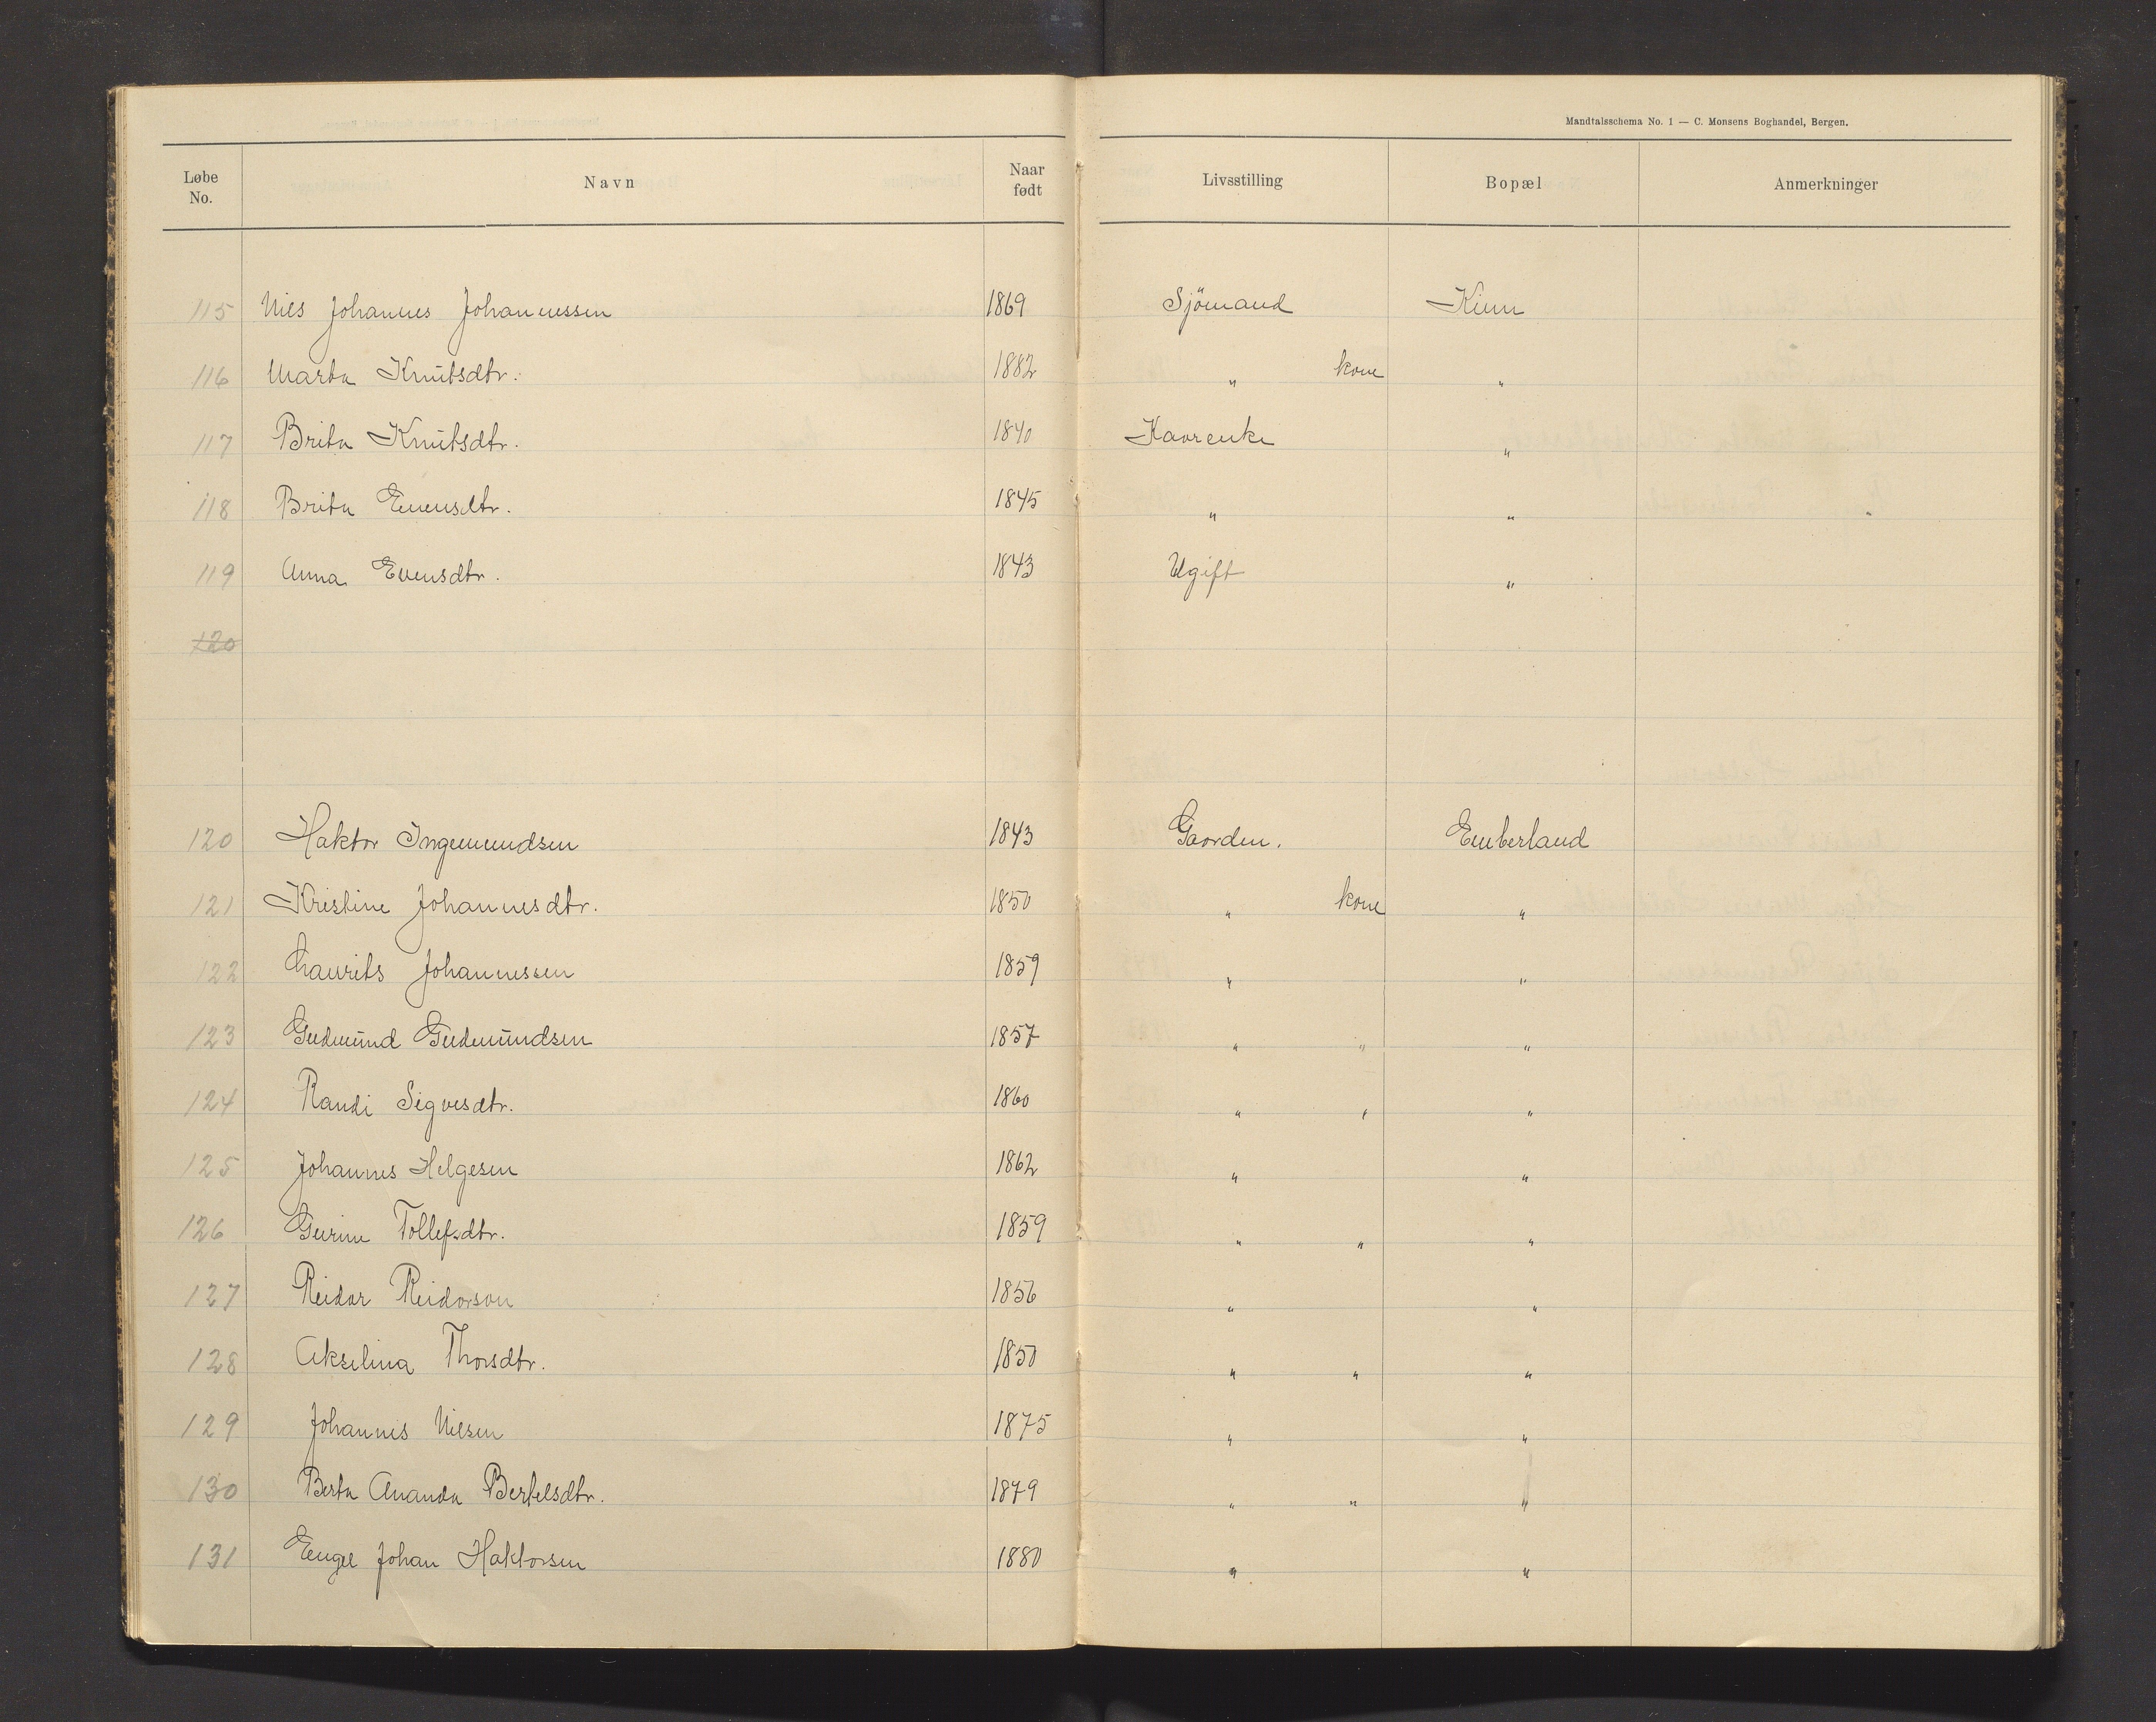 Mandtalsschema No. 1 — C. Monsens Boghandel, Bergen.
Løbe No. Navn Naar født Livsstilling Bopæl Anmerkninger
115 Nils Johannes Johannessen 1869 Sjömand Kinn
116 Marta Knutsdtr. 1882 " kone "
117 Brita Knutsdtr. 1840 Kaarenke "
118 Brita Evensdtr. 1845 " "
119 Anna Evensdtr. 1843 Ugift "
120
120 Haktor Ingemundsen 1843 Gaardm. Emberland
121 Kristine Johannesdtr. 1850 " kone "
122 Laurits Johannessen 1859 " "
123 Gudmund Gudmundsen 1857 " " "
124 Randi Sigvesdtr. 1860 " " "
125 Johannes Helgesen 1862 " "
126 Gurine Tollefsdtr. 1859 " " "
127 Reidar Reidarson 1856 " "
128 Akselina Thorsdtr. 1850 " " "
129 Johannes Nilsen 1875 " "
130 Berta Ananda Bertelsdtr. 1879 " " "
131 Johan Haktorsen 1880 " "